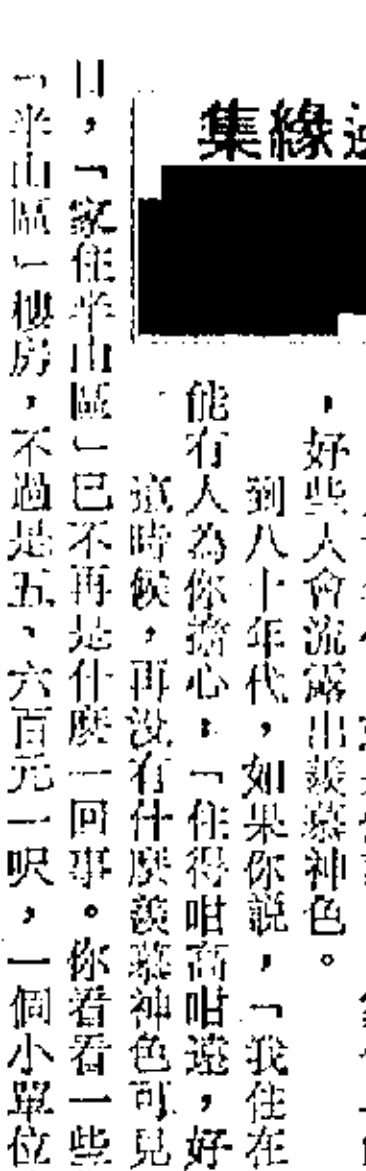 集緣
，好些人會流露出羨慕神色。
到八十年代，如果你説，「我住在
能有人為你擔心：「住得咁高咁遠，好
這時候，再沒有什麼羨慕神色可見
日，「家住半山區」已不再是什麼一回事。你看看一些
「半山區」樓房，不過是五、六百元一呎，一個小單位